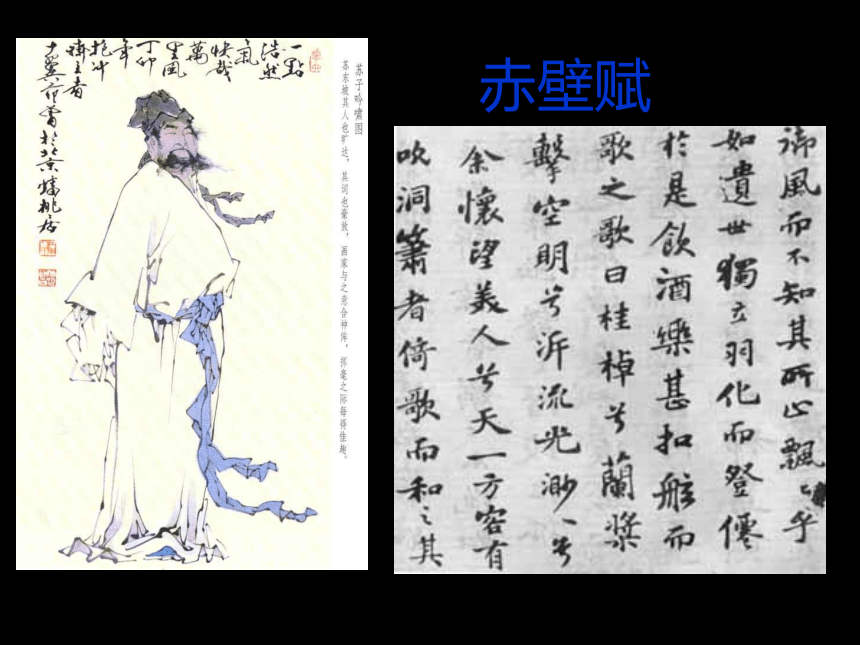 赤壁赋
苏子吟啸图
苏东坡其人也旷达，其词也豪放，画家与之意合神侔，挥毫之际每得佳趣。
一點
浩然
氣
快哉
萬
里風
丁卯
年
抱冲
齋主者
十翼范曾於北京
御風而不知其所止飄〻乎
如遺世獨立羽化而登僊
於是飲酒樂甚扣舷而
歌之歌曰桂棹兮蘭槳
擊空明兮泝流光渺〻兮
余懷望美人兮天一方客有
吹洞簫者倚歌而和之其